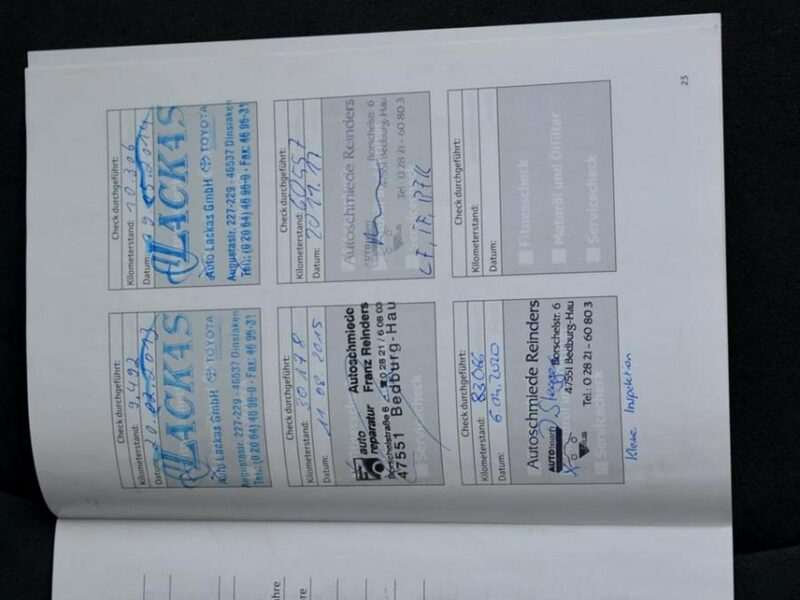 Check durchgeführt:
Kilometerstand: 9.492
Datum: 20.02.2013
LACKAS
Auto Lackas GmbH TOYOTA
Augustastr. 227-229 · 46537 Dinslaken
Tel.: (0 20 64) 46 96-0 · Fax: 46 96-31
Check durchgeführt:
Kilometerstand: 10.306
Datum:
LACKAS
Auto Lackas GmbH TOYOTA
Augustastr. 227-229 · 46537 Dinslaken
Tel.: (0 20 64) 46 96-0 · Fax: 46 96-31
Check durchgeführt:
Kilometerstand: 30178
Datum: 11.08.2015
auto reparatur
Autoschmiede
Franz Reinders
Borschelstraße 6 0 28 21 / 6 08 03
47551 Bedburg-Hau
Servicecheck
Check durchgeführt:
Kilometerstand: 60557
Datum:
Autoschmiede Reinders
Borschelstr. 6
47551 Bedburg-Hau
Tel. 0 28 21 - 60 80 3
Check durchgeführt:
Kilometerstand: 83066
Datum: 6.04.2020
Autoschmiede Reinders
AUTOteam plus
Borschelstr. 6
47551 Bedburg-Hau
Tel.: 0 28 21 - 60 80 3
Servicecheck
Kleine Inspektion
Check durchgeführt:
Kilometerstand:
Datum:
Fitnesscheck
Motoröl und Ölfilter
Servicecheck
23